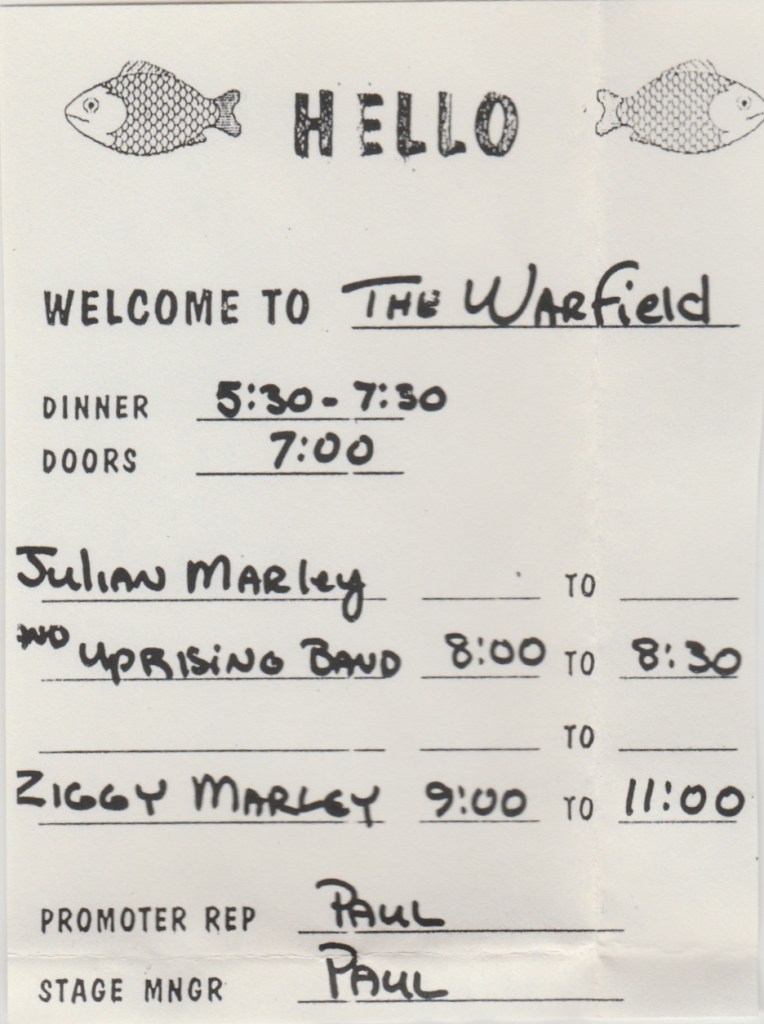 HELLO
WELCOME TO THE WARField
DINNER 5:30 - 7:30
DOORS 7:00
JuliAN MARley TO
AND UPRISING BAND 8:00 TO 8:30
TO
ZIGGY MARLEY 9:00 TO 11:00
PROMOTER REP PAUL
STAGE MNGR PAUL